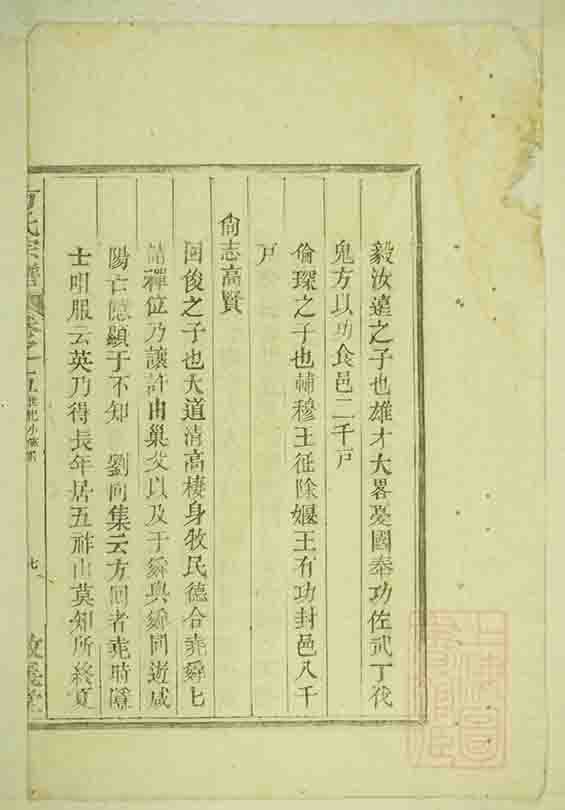 毅汝遠之子也雄才大畧憂國奉功佐武丁伐
鬼方以功食邑二千戸
倫琛之子也輔穆王征除偃王有功封邑八千
戸
尙志高賢
回俊之子也大道清高棲身牧民德合堯舜七
禪位乃讓許由巢父以及于舜與舜同遊咸
陽亡億顯于不知 劉向集云方回者堯時隱
士咀服云英乃得長年居五祚山莫知所終夏
方氏宗譜 卷之五 七